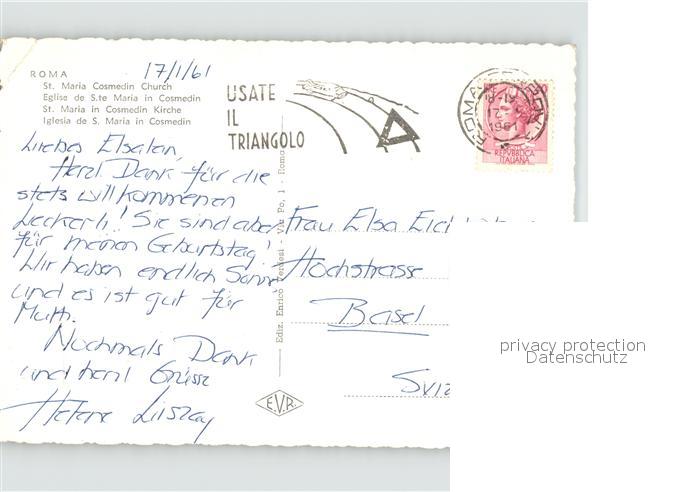 ROMA
17/1/61
St. Maria Cosmedin Church
Eglise de S.te Maria in Cosmedin
St. Maria in Cosmedin Kirche
Iglesia de S. Maria in Cosmedin
USATE
IL
TRIANGOLO
ROMA
1961
REPVBBLICA
ITALIANA
Liebes
Herzl. Dank für die
stets willkommenen
Leckerli! Sie sind aber
für meinen Geburtstag!
Wir haben endlich Sonne
und es ist gut für
Muth.
Nochmals Dank
und herzl Grüsse
Helene
Ediz. Enrico Verdesi - Via Po, 1 - Roma
E.V.R.
Frau Elsa
Hochstrasse
Basel
Sviz
privacy protection
Datenschutz